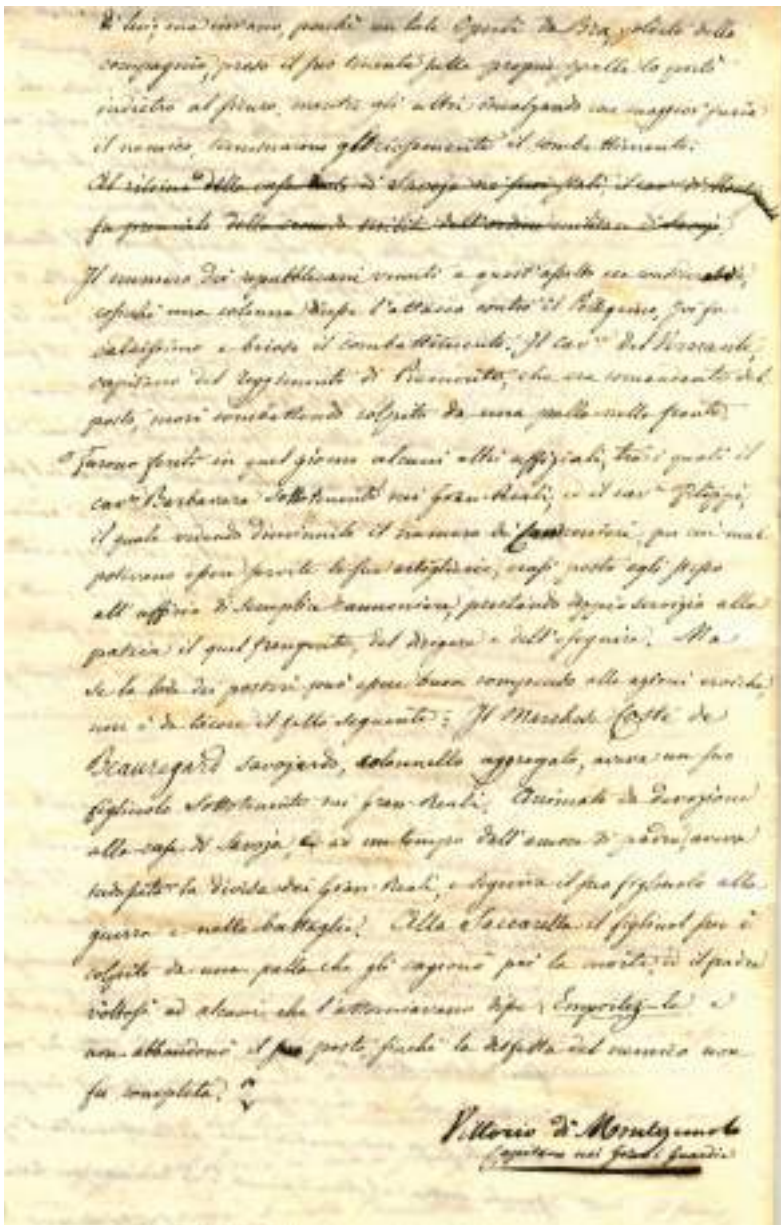 di lui, ma invano, perché un tale da Bra, soldato della
compagnia, preso il suo tenente sulle proprie spalle lo portò
indietro al sicuro, mentre gli altri incalzando con maggior furia
il nemico, terminarono gloriosamente il combattimento.
Al della casa di Savoja ne' suoi stati, il cav. di
fu della croce di dell'ordine militare di Savoja.
Il numero dei repubblicani venuti a quest'assalto era
cosicché una colonna diresse l'attacco contro il Pellegrino, ivi fu
caldissimo e il combattimento. Il cav.re del Verzante,
capitano del reggimento di Piemonte, che era comandante del
posto, morì combattendo colpito da una palla nella fronte.
Furono feriti in quel giorno alcuni altri uffiziali, tra i quali il
cav.re Barbavara sottotenente nei Gran-Reali, ed il cav.re Filippi,
il quale vedendo diminuito il numero dei Cannonieri, per cui mal
potevano essere servite le sue artiglierie, erasi posto egli stesso
all'uffizio di semplice cannoniere, prestando doppio servizio alla
patria il quel frangente, del dirigere e dell'eseguire. Ma
se la lode dei posteri può essere buon compenso alle azioni eroiche,
non è da tacere il fatto seguente: Il Marchese Costa de
Beauregard savojardo, colonnello aggregato, aveva un suo
figliuolo sottotenente nei Gran-Reali. Animato da devozione
alla casa di Savoja, ed ad un tempo dall'amore di padre, aveva
la divisa dei Gran-Reali, e seguiva il suo figliuolo alla
guerra e nelle battaglie. Alla Saccarella il figliuol suo è
colpito da una palla che gli cagionò poi la morte, ed il padre
voltosi ad alcuni che l'attorniavano disse: Emportez-le e
non abbandonò il suo posto finché la disfatta del nemico non
fu completa.
Vittorio di
Capitano nei Guardie